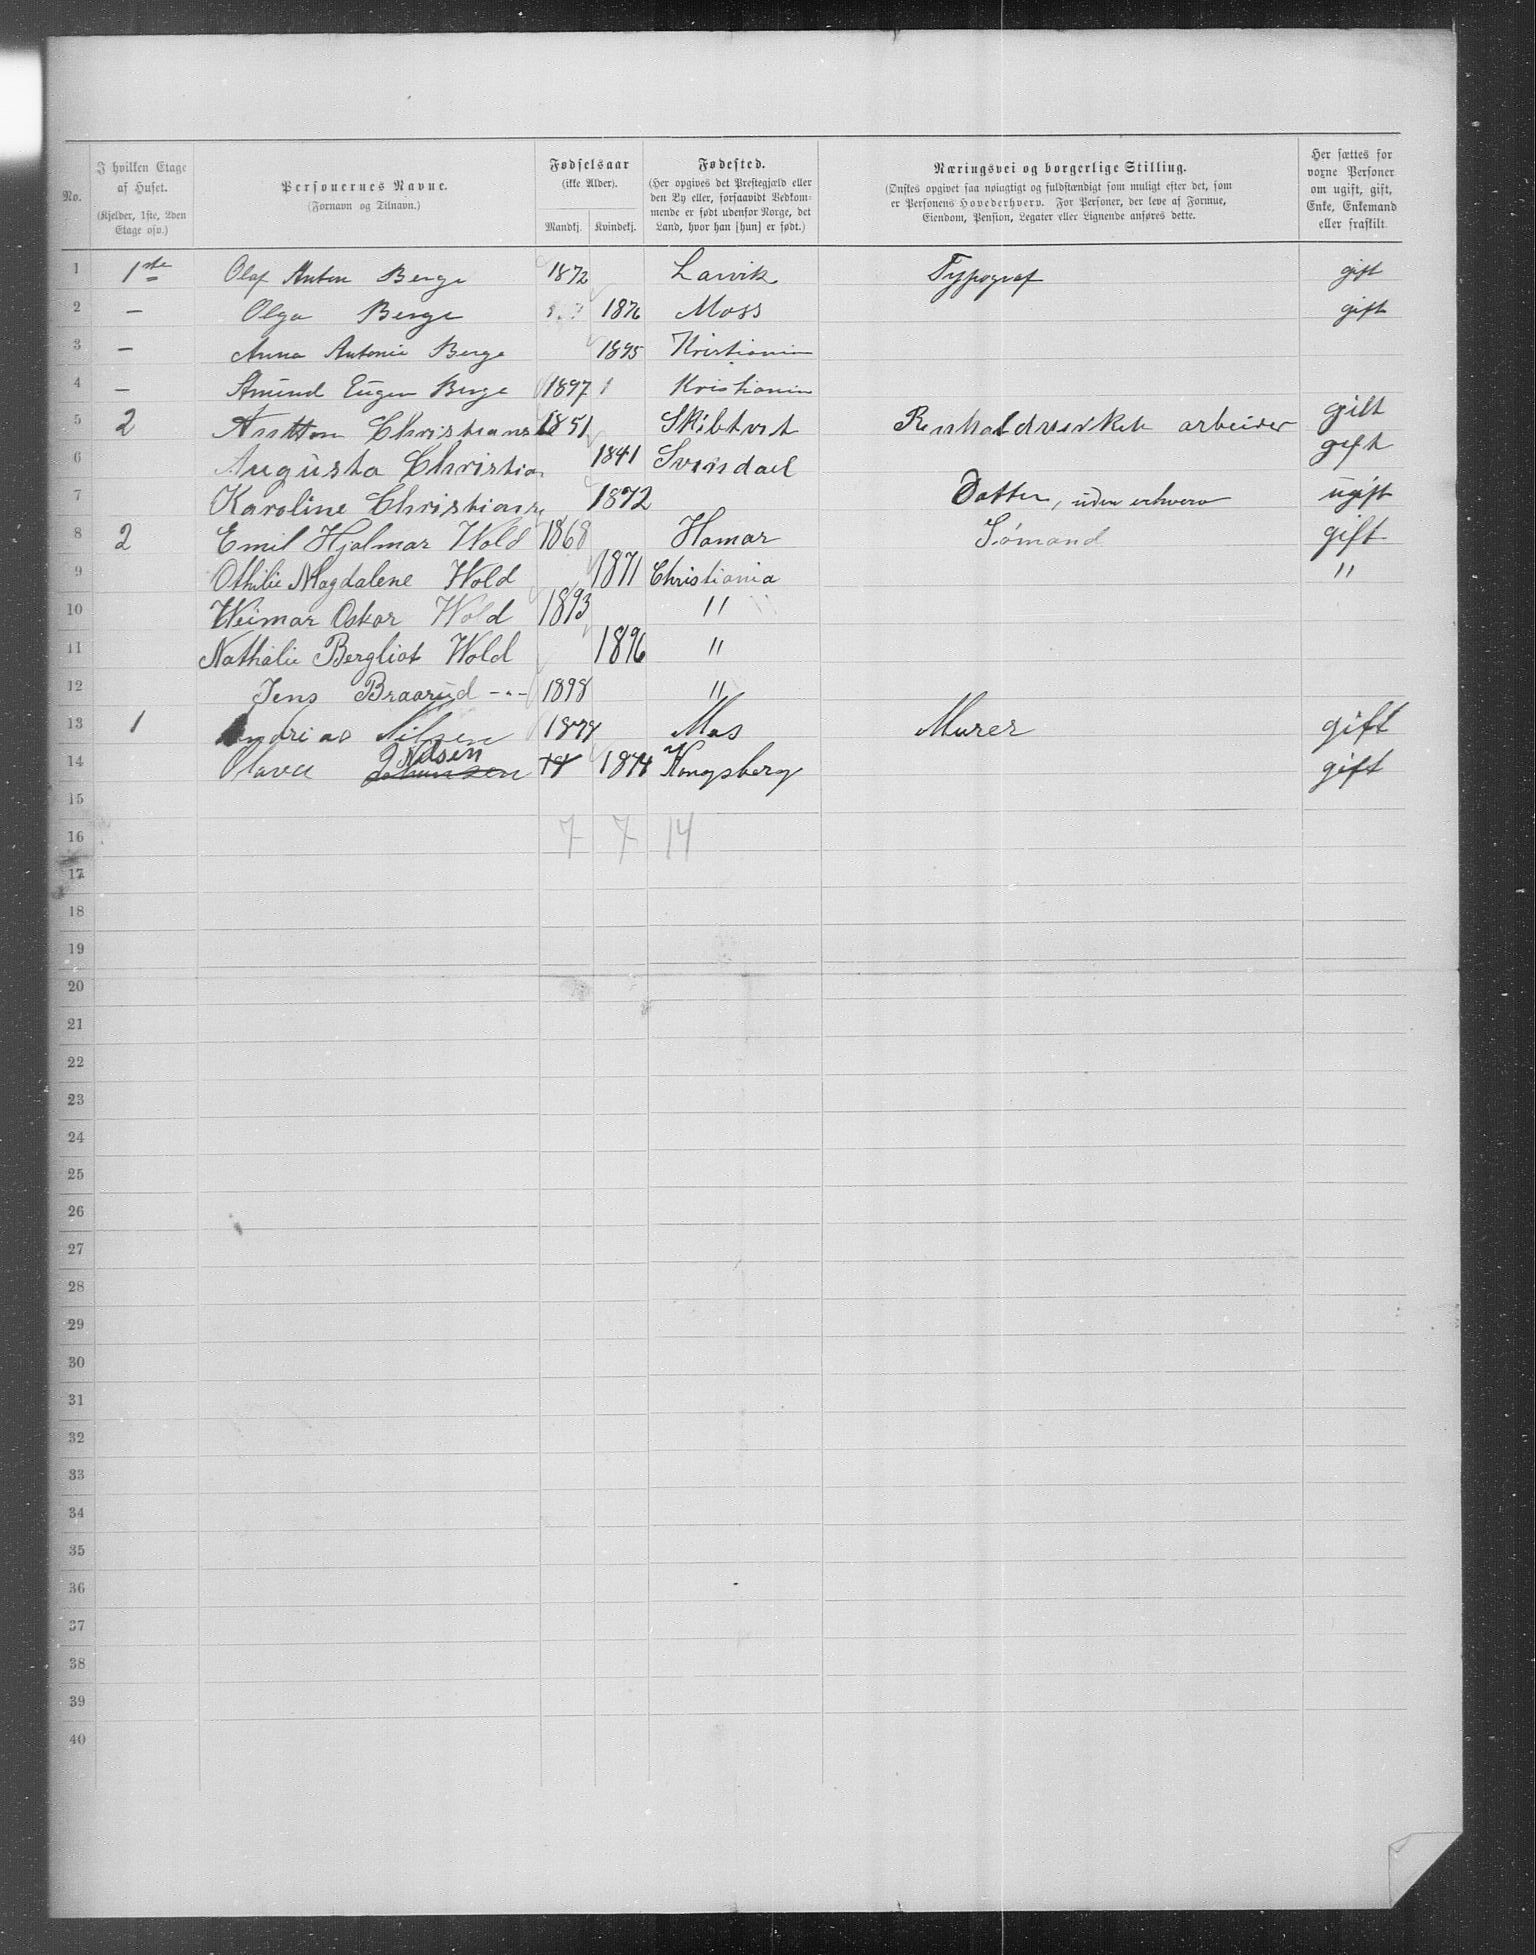 No. I hvilken Etage af Huset. (Kjelder, 1ste, 2den Etage osv.) Personernes Navne. (Fornavn og Tilnavn.) Fødselsaar (ikke Alder). Mandkj. Kvindekj. Fødested. (Her opgives det Prestegjæld eller den By eller, forsaavidt Vedkommende er født udenfor Norge, det Land, hvor han [hun] er født.) Næringsvei og borgerlige Stilling. (Ønskes opgivet saa nøiagtigt og fuldstændigt som muligt efter det, som er Personens Hovederhverv. For Personer, der leve af Formue, Eiendom, Pension, Legater eller Lignende anføres dette. Her sættes for voxne Personer om ugift, gift, Enke, Enkemand eller fraskilt.
1 1ste Olaf Anton Berge 1872 Larvik Typograf gift
2 — Olga Berge 1876 Moss gift
3 — Anna Antonie Berge 1895 Kristiania
4 — Amund Eugen Berge 1897 1 Kristiania
5 2 Antton Christianse 1851 Skibtvet Renholdsverket arbeider gift
6 Augusta Christian 1841 Svinsdael gift
7 Karoline Christians 1872 Datter, uden erhverv ugift
8 2 Emil Hjalmar Wold 1868 Hamar Sømand gift
9 Othilie Magdalene Wold 1871 Christiania "
10 Weimar Oskar Wold 1893 "
11 Nathalie Bergliot Wold 1896 "
12 Jens Braarud -"- 1898 "
13 1 Andrias Nilsen 1878 Mas Murer gift
14 Olava Johansen Nilsen 18 1874 Kongsberg gift
15
16 7 7 14
17
18
19
20
21
22
23
24
25
26
27
28
29
30
31
32
33
34
35
36
37
38
39
40